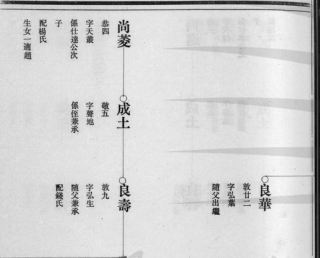 良華
敦廿二
字弘葉
隨父出繼
尚菱
恭四
字天叢
係仕遠公次
子
配楊氏
生女一適趙
成土
敬五
字聲地
係侄兼承
良壽
敦九
字弘生
隨父兼承
配錢氏